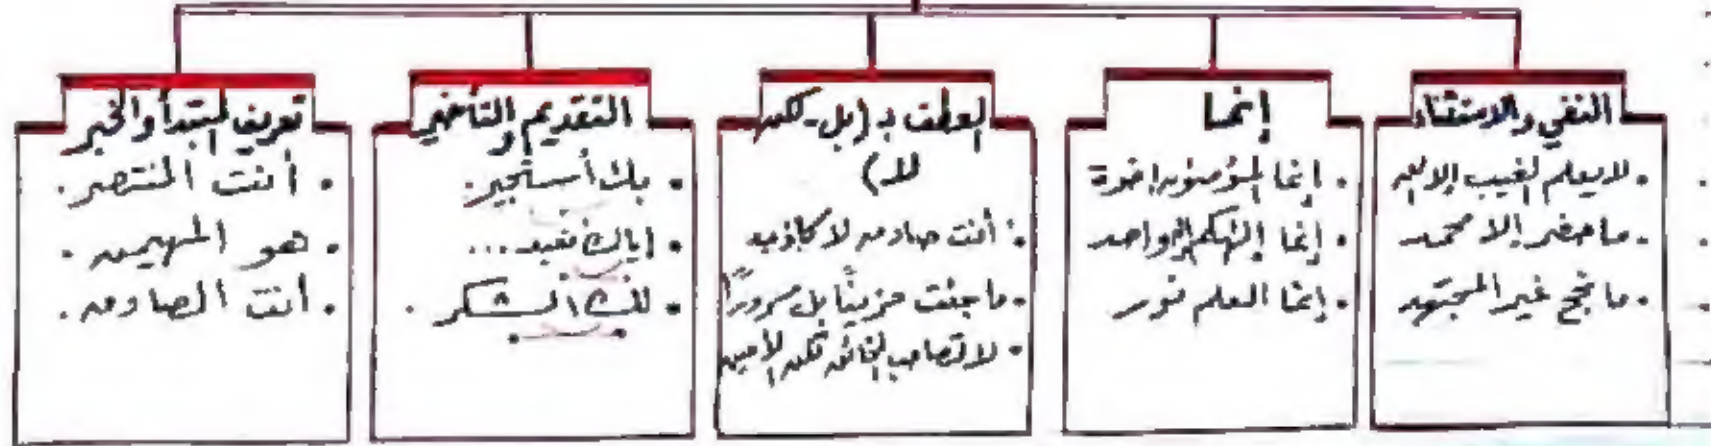 النفي والاستثناء
• لا يعلم الغيب إلا الله
• ما حضر إلا محمد
• ما نجح غير المجتهد
إنما
• إنما المؤمنون إخوة
• إنما إلهكم إله واحد
• إنما العلم نور
العطف بـ (بل - لكن
لا)
• أنت صادق لا كاذب
• ما جئت حزينًا بل مسرورًا
• لا تصاحب الخائن لكن الأمين
التقديم والتأخير
• بك أستجير.
• إياك نعبد...
• لك الشكر.
تعريف المبتدأ والخبر
• أنت المنتصر.
• هو المهيمن.
• أنت الصادق.